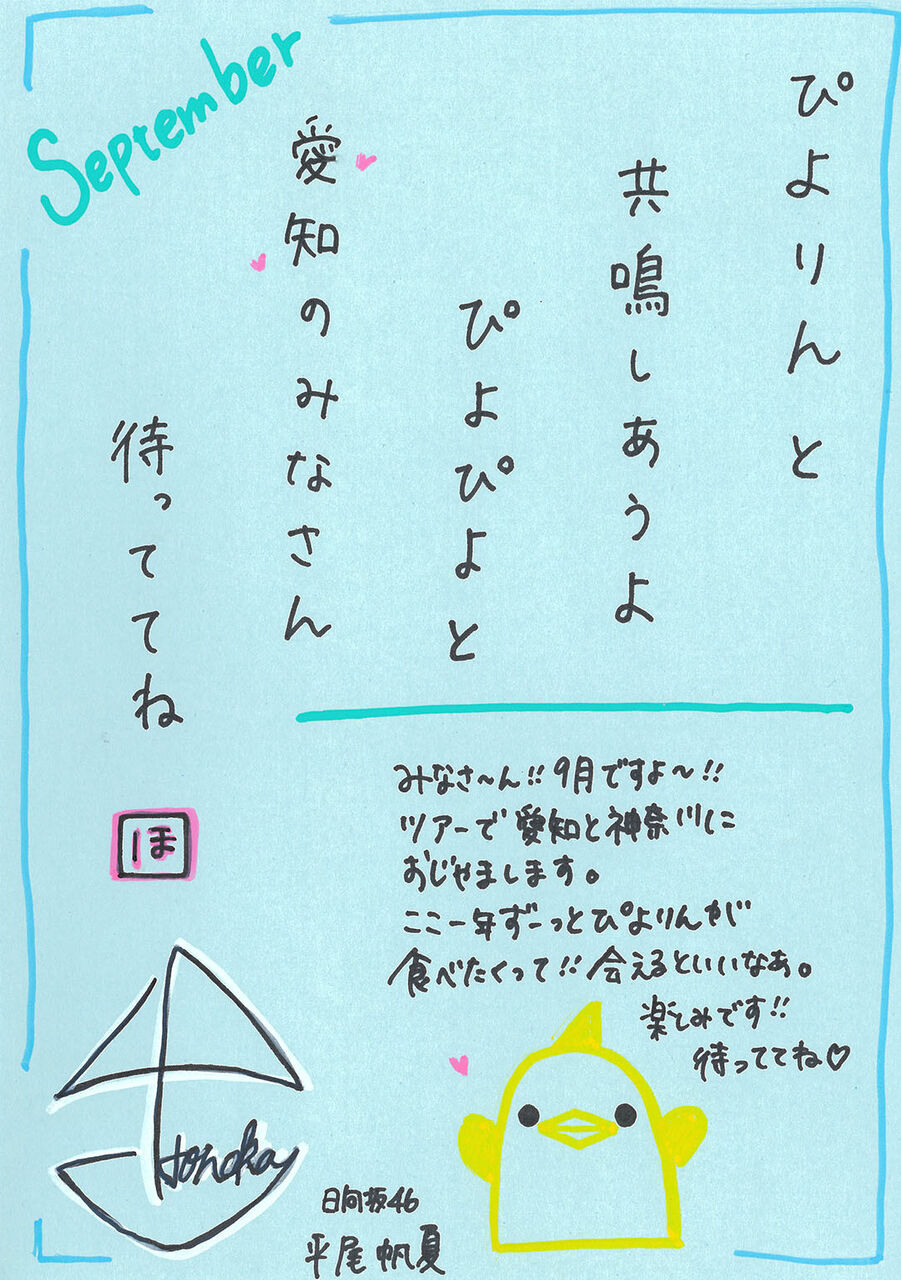 September
ぴよりんと
共鳴しあうよ
ぴよぴよと
愛知のみなさん
待っててね
ほ
みなさ〜ん!! 9月ですよ〜!!
ツアーで愛知と神奈川に
おじゃまします。
ここ一年ずーっとぴよりんが
食べたくって!! 会えるといいなぁ。
楽しみです!!
待っててね♡
Honoka
日向坂46
平尾帆夏